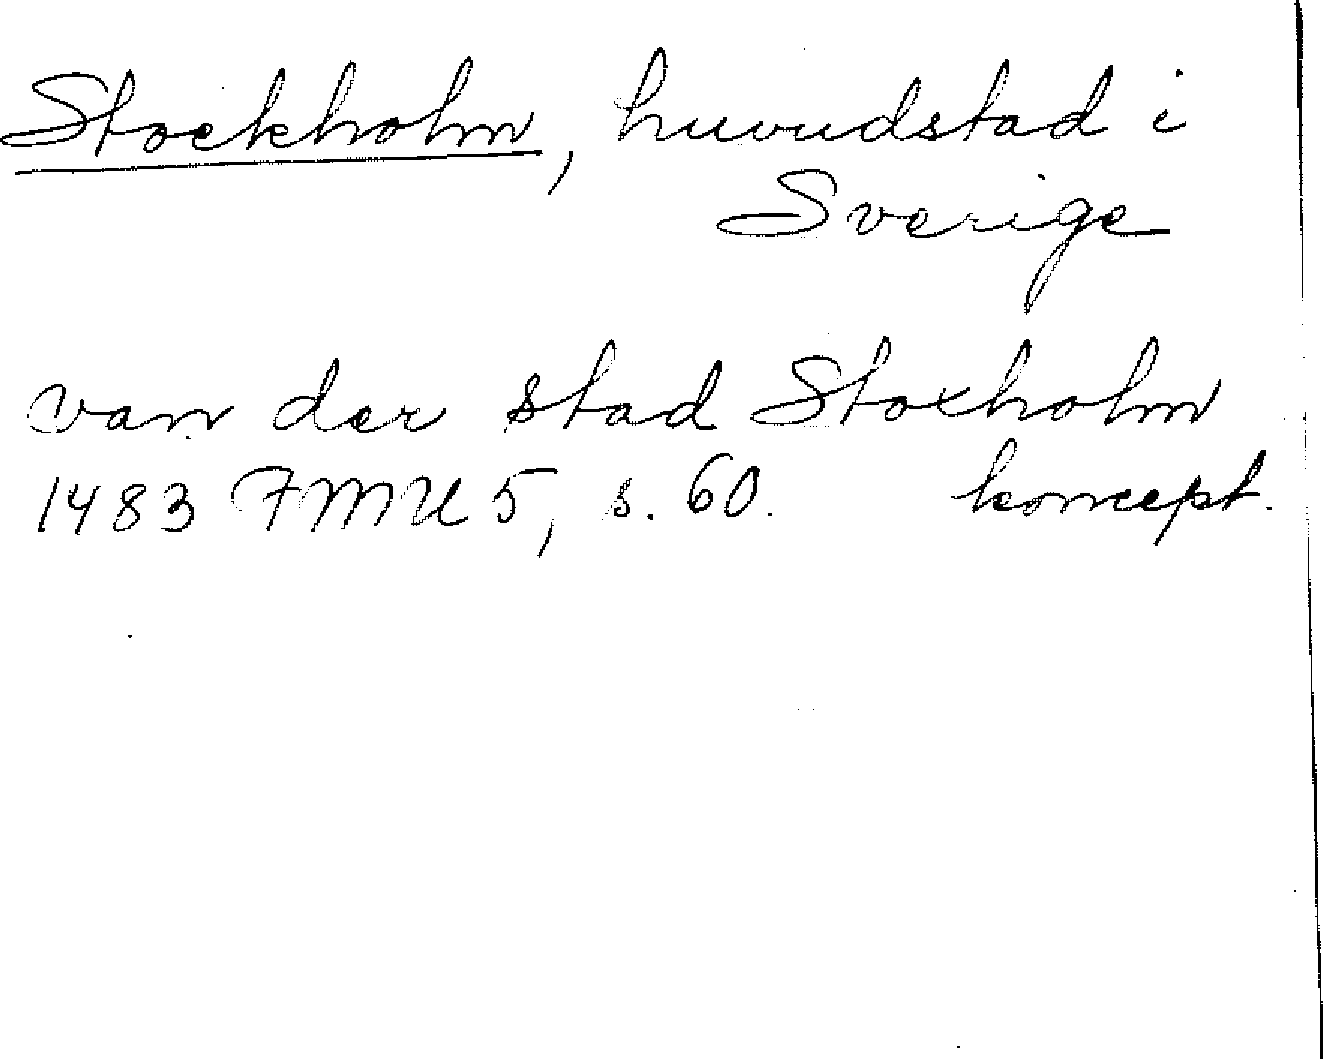 Stockholm, huvudstad i
Sverige
van der stad Stoxholm
1483 FMU 5, s. 60. koncept.